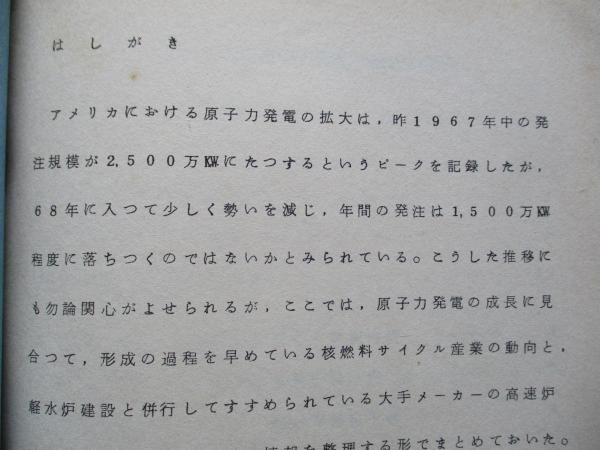 はしがき
アメリカにおける原子力発電の拡大は，昨1967年中の発
注規模が2,500万㎾にたつするというピークを記録したが，
68年に入つて少しく勢いを減じ，年間の発注は1,500万㎾
程度に落ちつくのではないかとみられている。こうした推移に
も勿論関心がよせられるが，ここでは，原子力発電の成長に見
合つて，形成の過程を早めている核燃料サイクル産業の動向と，
軽水炉建設と併行してすすめられている大手メーカーの高速炉
情報を整理する形でまとめておいた。